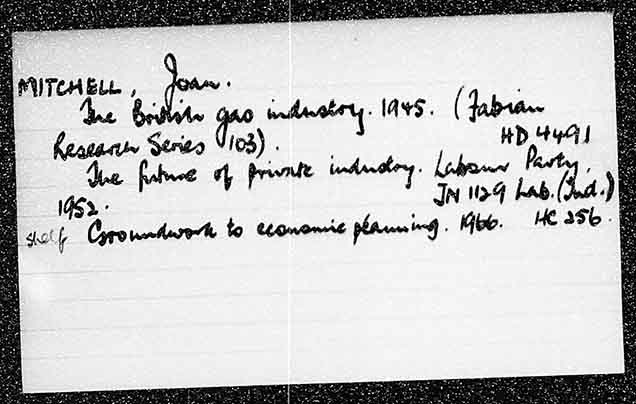 MITCHELL, Joan.
The British gas industry. 1945. (Fabian
Research Series 103).
HD 4491
The future of private industry. Labour Party,
1952.
JN 1129 Lab. (Ind.)
shelf Groundwork to economic planning. 1966. HC 256.